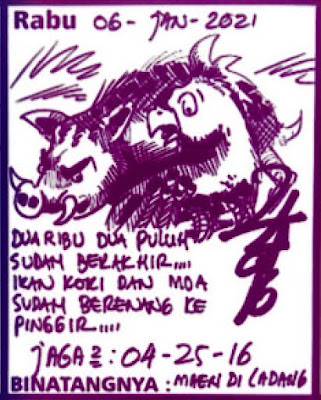 Rabu 06 - JAN - 2021
DUA RIBU DUA PULUH
SUDAH BERAKHIR....
IKAN KOKI DAN MOA
SUDAH BERENANG KE
PINGGIR....
JAGA2 : 04-25-16
BINATANGNYA : MAEN DI LADANG